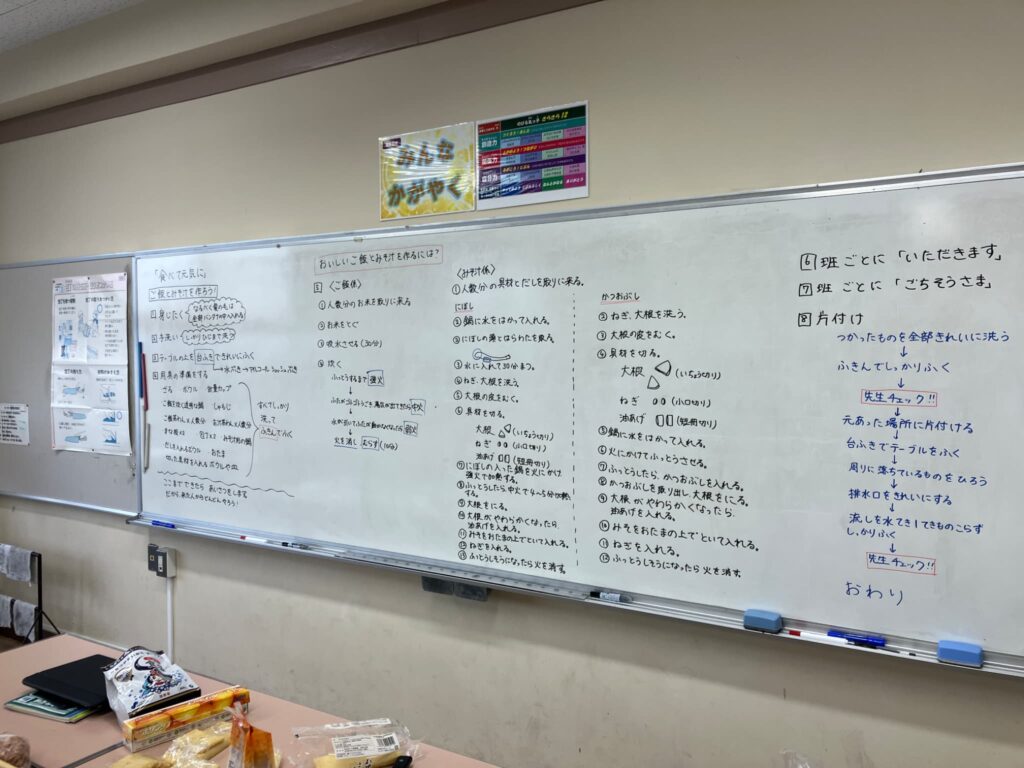 みんな
かがやく
「食べて元気に」
ご飯とみそ汁を作ろう!
1 身じたく
2 手洗い しっかりひじまで洗う
3 テーブルの上を台ふきできれいにふく
4 用具の準備をする
ざる ボウル 計量カップ
しゃもじ
おたま
すべてしっかり
洗って
ふきんでふく
ここまでできたら あいさつをします
おいしいご飯とみそ汁を作るには?
5 〈ご飯係〉
①人数分のお米を取りに来る
②お米をとぐ
③吸水させる(30分)
④炊く
ふっとうするまで 強火
火を消し、むらす(10分)
〈みそ汁係〉
①人数分の具材とだしを取りに来る。
にぼし
②鍋に水をはかって入れる。
③にぼしの頭とはらわたを取る
③水に入れて30分まつ。
④ねぎ、大根を洗う。
⑤大根の皮をむく。
⑥具材を切る。
大根 (いちょう切り)
ねぎ (小口切り)
油あげ (短冊切り)
⑦にぼしの入った鍋を火にかけ、
強火で加熱する。
⑧ふっとうしたら中火で4~5分加熱
する。
⑨大根をにる。
⑩大根がやわらかくなったら、
油あげを入れる。
⑪みそをおたまの上でといて入れる。
⑫ねぎを入れる。
⑬ふっとうしそうになったら火を消す。
かつおぶし
②ねぎ、大根を洗う。
③大根の皮をむく。
④具材を切る。
大根 (いちょう切り)
ねぎ (小口切り)
油あげ (短冊切り)
⑤鍋に水をはかって入れる。
⑥火にかけてふっとうさせる。
⑦ふっとうしたら、かつおぶしを入れる。
⑧かつおぶしを取り出し、大根をにる。
⑨大根がやわらかくなったら、
油あげを入れる。
⑩みそをおたまの上でといて入れる。
⑪ねぎを入れる。
⑫ふっとうしそうになったら火を消す
6 班ごとに「いただきます」
7 班ごとに「ごちそうさま」
8 片付け
つかったものを全部きれいに洗う
↓
ふきんでしっかりふく
↓
先生チェック!!
↓
元あった場所に片付ける
↓
台ふきでテーブルをふく
↓
周りに落ちているものをひろう
↓
排水口をきれいにする
↓
流しを水てき1てきものこらず
しっかりふく
↓
先生チェック!!
おわり